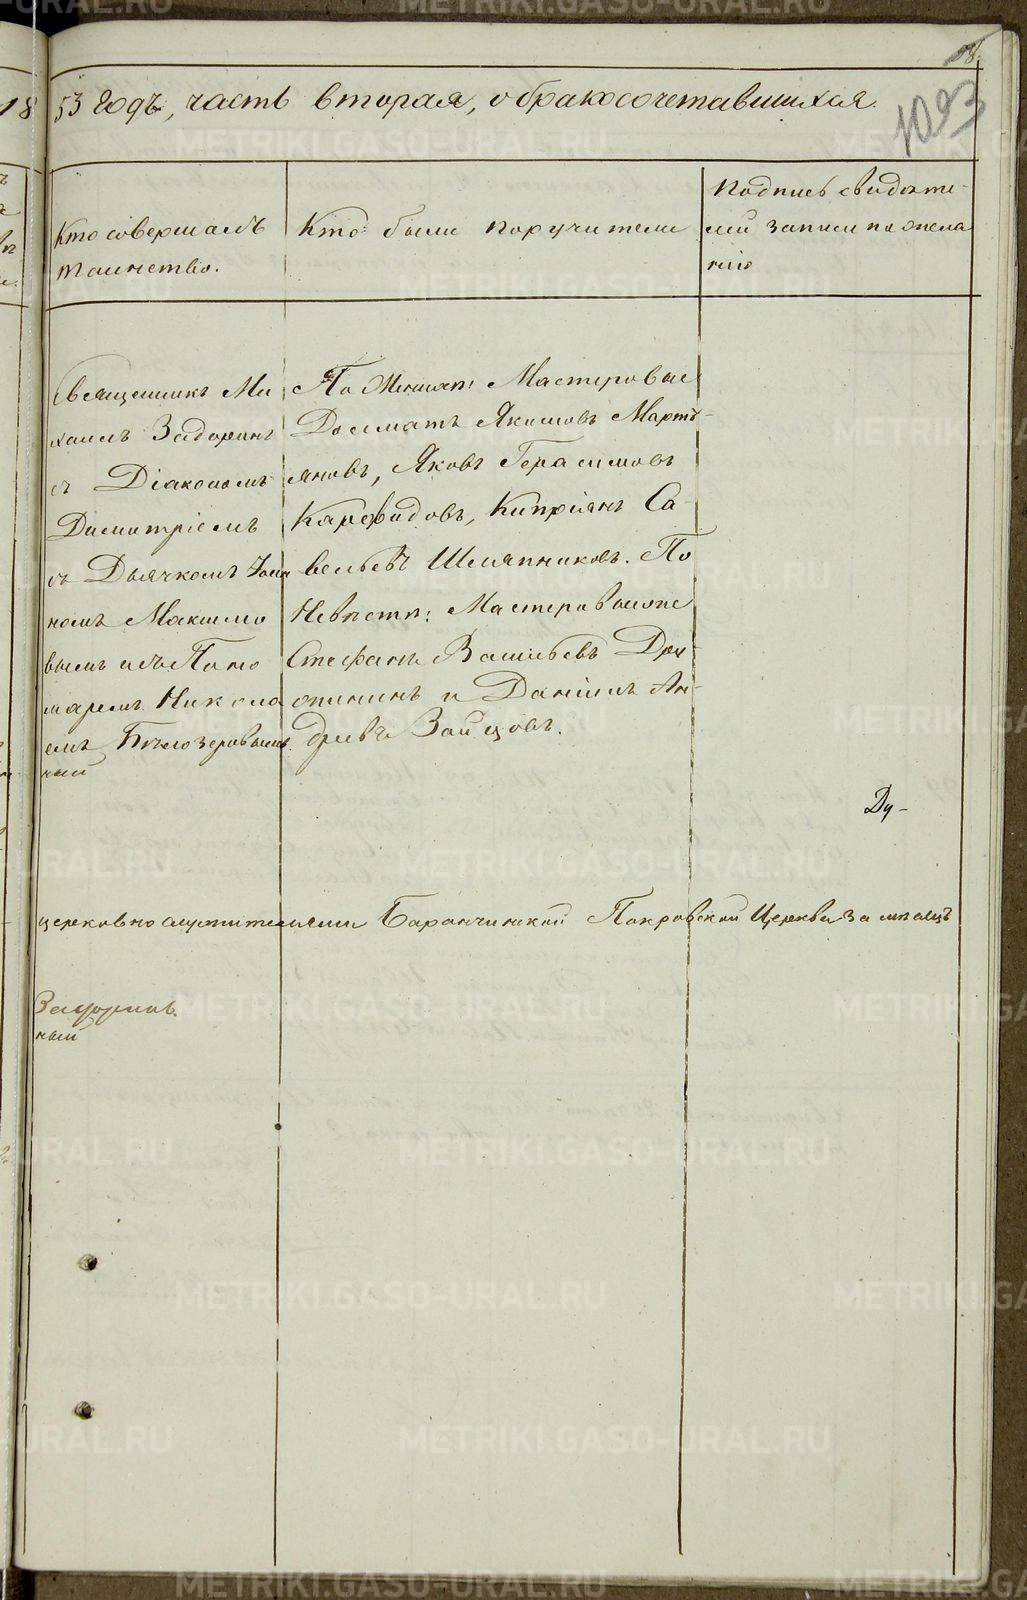 18 53 Годъ, часть вторая, о бракосочетавшихся.
1093
Кто совершалъ
таинство.
Кто были поручители
Подпись свидѣте-
лей записи по жела
нію
Священникъ Ми
хаилъ Задоринъ
съ Діакономъ
Димитріемъ
съ Дьячкомъ
номъ Максимо
вымъ и съ Поно
маремъ Никола
емъ Бѣлозеровымъ.
ный
По Женихѣ: Мастеровые
Досиматъ Якимовъ Марть-
яновъ, Яковъ Герасимовъ
Карфидовъ, Кипріянъ Са-
вельевъ Шляпниковъ. По
Невѣстѣ: Мастеровые
Стефанъ Васильевъ
и Даніилъ Ан-
дреевъ Зайцовъ.
Ду-
церковнослужителями Баранчинской Покровской Церкви За мѣсяцъ
Задоринъ.
ный
METRIKI.GASO-URAL.RU